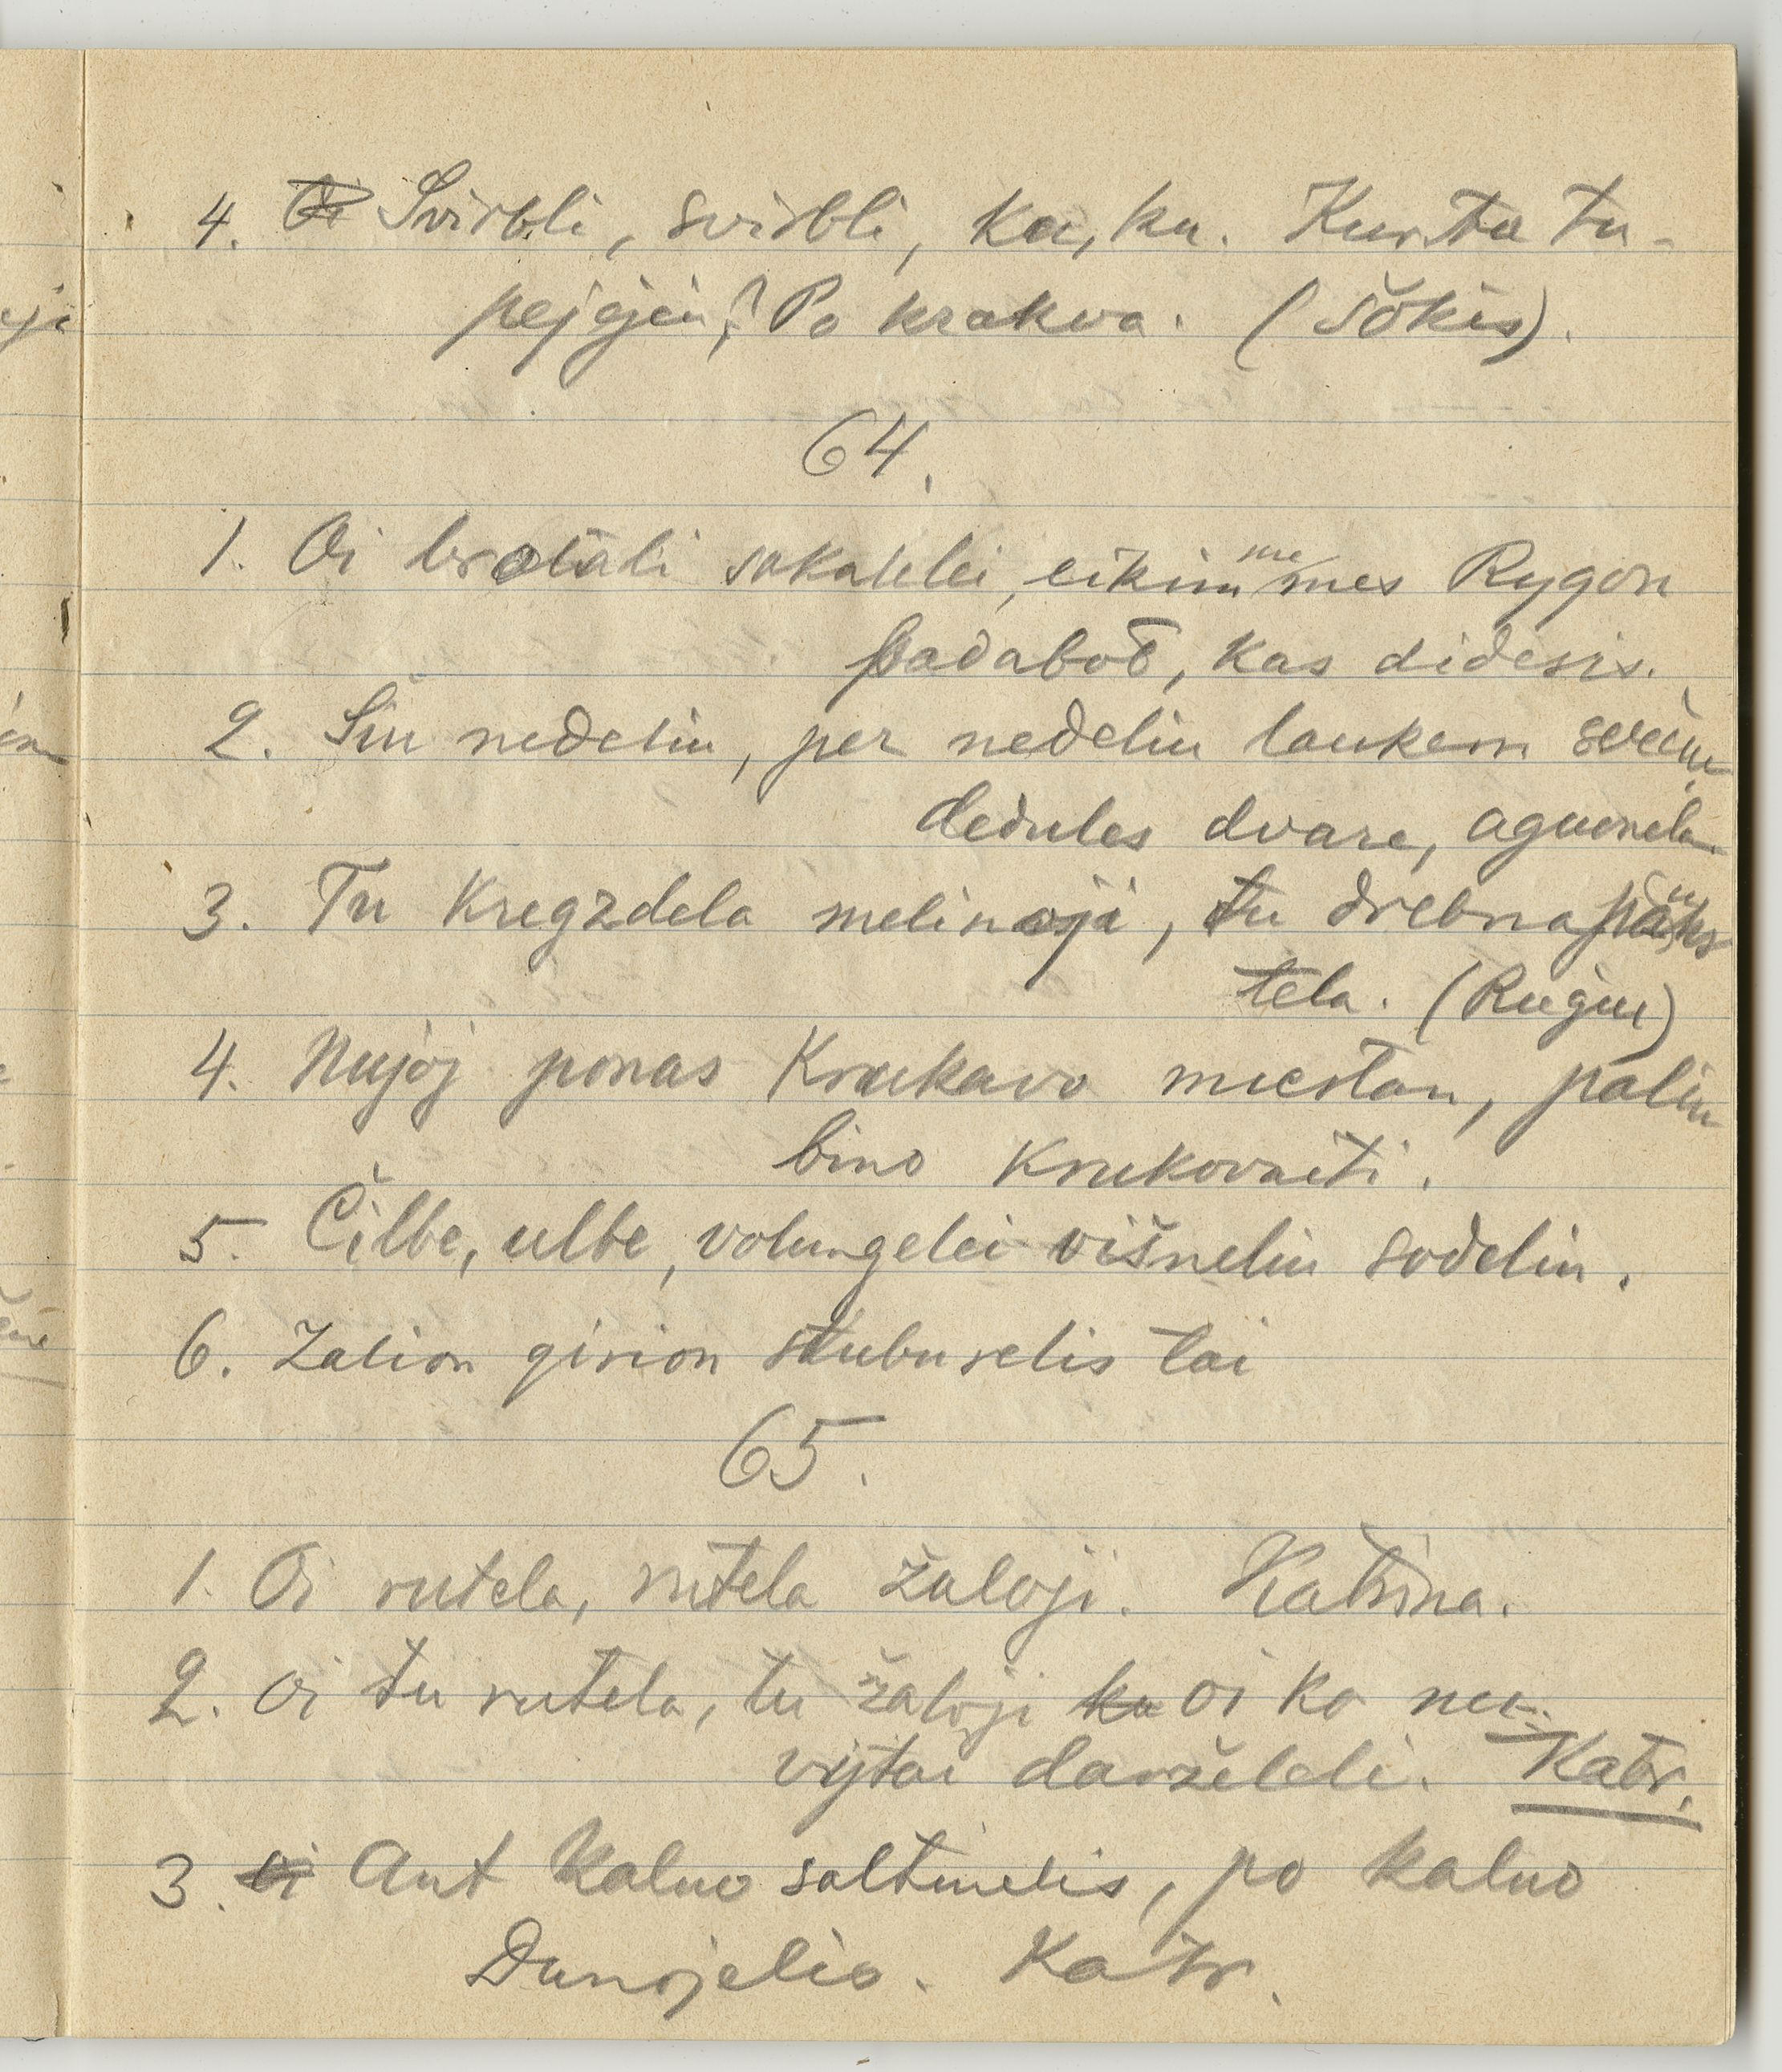 4. Svirbli, svirbli, ku, ku. Kur ta tu-
pejojei? Po krakva. (Šokis).
64.
1. Oi brotali sakalelei, eikim me mes Rygon
padabot, kas didesis.
2. Šiu nedeliu, per nedeliu laukem
dedules dvare, aguonela
3. Tu Kregzdela melinoji, tu drebna pauks
tela. (Rugiu)
4. Nujoj ponas Krukavo miestan, paliu
bino Krukovaiti.
5. Čilbe, ulbe, volungelei višneliu sodeliu.
6. Zalion girion stuburelis tai
65.
1. Oi rutela, rutela žaloji. Katrina.
2. Oi tu rutela, tu žaloji ku oi ko nu-
vytai darželeli. Katr.
3. Oi Ant kalno saltinelis, po kalno
Dunojelis. Katr.